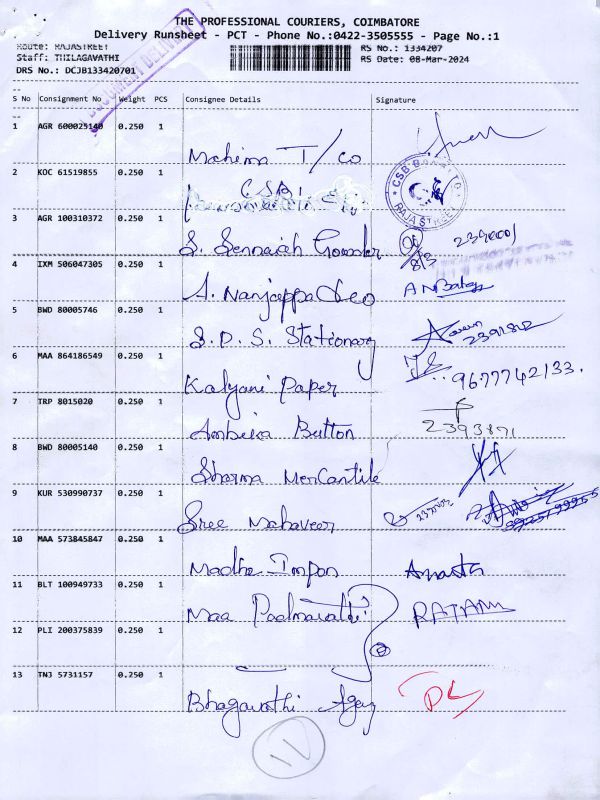 THE PROFESSIONAL COURIERS, COIMBATORE
Delivery Runsheet - PCT - Phone No.:0422-3505555 - Page No.:1
Route: RAJASTREET
RS No.: 1334207
Staff: THILAGAVATHI
RS Date: 08-Mar-2024
DRS No.: DCJB133420701
S No Consignment No Weight PCS Consignee Details Signature
1 AGR 600025140 0.250 1
Mahima T/co
2 KOC 61519855 0.250 1
CSB
CSB BANK LTD.
RAJA STREET
3 AGR 100310372 0.250 1
S. Sennaiah Gounder 8/3 2390001
4 IXM 506047305 0.250 1
A. Nanjappa Ceo A N Babu
5 BWD 80005746 0.250 1
S. D. S. Stationary 2391812
6 MAA 864186549 0.250 1
Kalyani Paper 9677742133.
7 TRP 8015020 0.250 1
Ambika Button 2393871
8 BWD 80005140 0.250 1
Sharma Mercantile
9 KUR 530990737 0.250 1
Sree Mahaveer
10 MAA 573845847 0.250 1
Madhu Impon
11 BLT 100949733 0.250 1
Maa Padmavathi RATAN
12 PLI 200375839 0.250 1
13 TNJ 5731157 0.250 1
Bhagavathi Agey
11